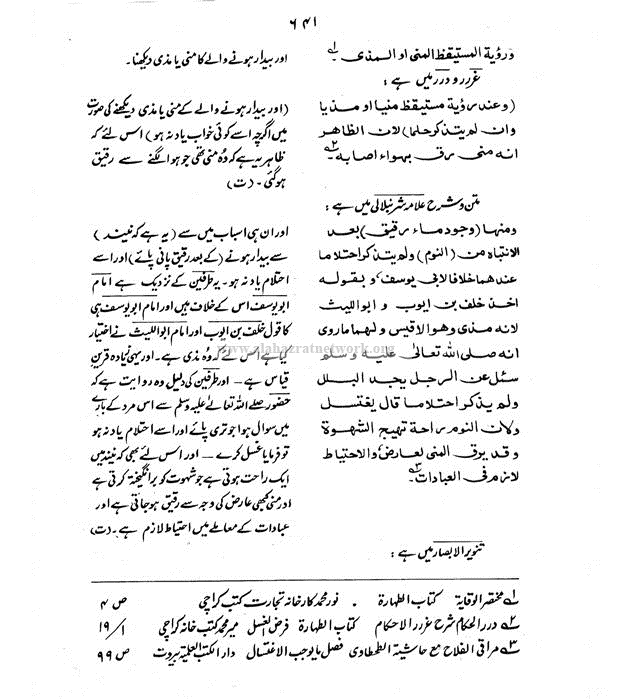 ۶۴۱
ورؤية المستيقظ المنى او المذى۔؎۱
غرر و درر میں ہے :
(وعند رؤية مستيقظ منيا او مذيا
وان لم يتذكر حلما) لان الظاهر
انه منى رق بهواء اصابه۔؎۲
متن و شرح علامہ شرنبلالی میں ہے :
ومنها (وجود ماء رقيق) بعد
الانتباه من (النوم) ولم يتذكر احتلاما
عندهما خلافا لابي يوسف و بقوله
اخذ خلف بن ايوب و ابوالليث
لانه مذى وهو الاقيس و لهما ماروى
انه صلى الله تعالى عليه و سلم
سئل عن الرجل يجد البلل
ولم يذكر احتلاما قال يغتسل
ولان النوم راحة تهيج الشهوة
و قد يرق المنى لعارض والاحتياط
لازم فى العبادات۔؎۳
تنویر الابصار میں ہے :
اور بیدار ہونے والے کا منی یا مذی دیکھنا۔
(اور بیدار ہونے والے کے منی یا مذی دیکھنے کی صورت
میں اگرچہ اسے کوئی خواب یاد نہ ہو) اس لئے کہ
ظاہر یہ ہے کہ وُہ منی تھی جو ہوا لگنے سے رقیق
ہو گئی۔ (ت)
اور ان ہی اسباب میں سے (یہ ہے کہ نیند)
سے بیدار ہونے (کے بعد رقیق پانی پائے) اور اسے
احتلام یاد نہ ہو۔ یہ طرفین کے نزدیک ہے امام
ابویوسف اس کے خلاف ہیں اور امام ابویوسف ہی
کا قول خلف بن ایوب اور امام ابواللیث نے اختیار
کیا ہے اس لئے کہ وُہ مذی ہے۔ اور یہی زیادہ قرینِ
قیاس ہے۔ اور طرفین کی دلیل وہ روایت ہے کہ
حضور صلے اللہ تعالٰی علیہ وسلم سے اس مرد کے بارے
میں سوال ہوا جو تری پائے اور اسے احتلام یاد نہ ہو
تو فرمایا غسل کرے۔ اور اس لئے بھی کہ نیند میں
ایک راحت ہوتی ہے جو شہوت کو برانگیختہ کرتی ہے
اور منی کبھی عارض کی وجہ سے رقیق ہو جاتی ہے اور
عبادات کے معاملے میں احتیاط لازم ہے۔ (ت)
www.alahazratnetwork.org
؎۱ مختصر الوقایۃ کتاب الطہارۃ ۔ نور محمد کارخانہ تجارت کتب کراچی ص ۴
؎۲ درر الحکام شرح غرر الاحکام کتاب الطہارۃ فرض الغسل میر محمد کتب خانہ کراچی ۱/ ۱۹
؎۳ مراقی الفلاح مع حاشیۃ الطحطاوی فصل ما یوجب الاغتسال دار الکتب العلمیۃ بیروت ص ۹۹